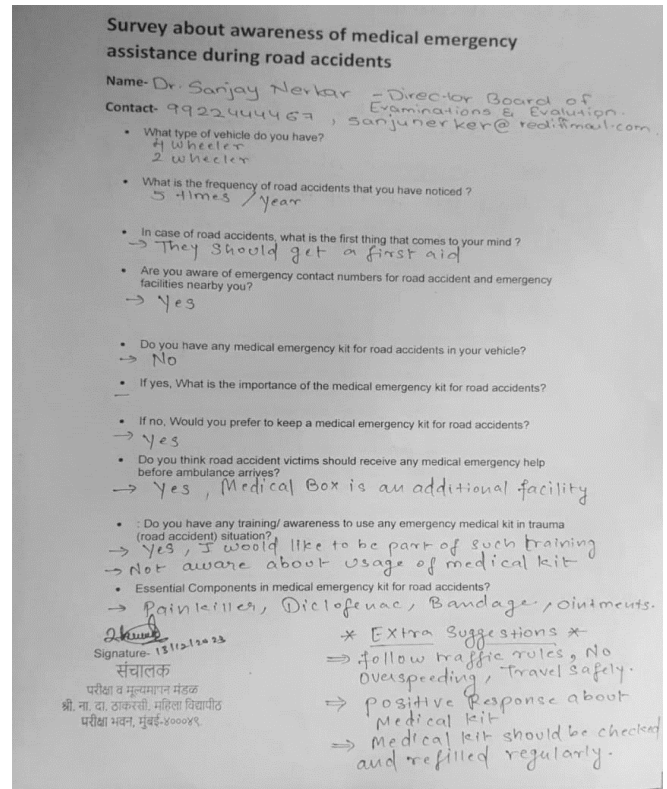 Survey about awareness of medical emergency
assistance during road accidents
Name- Dr. Sanjay Nerkar - Director Board of
Examinations & Evalution.
Contact- 9922444467, sanjunerker@rediffmail.com
• What type of vehicle do you have?
4 wheeler
2 wheeler
• What is the frequency of road accidents that you have noticed ?
5 times / year
• In case of road accidents, what is the first thing that comes to your mind ?
→ They should get a first aid
• Are you aware of emergency contact numbers for road accident and emergency
facilities nearby you?
→ Yes
• Do you have any medical emergency kit for road accidents in your vehicle?
→ No
• If yes, What is the importance of the medical emergency kit for road accidents?
—
• If no, Would you prefer to keep a medical emergency kit for road accidents?
→ Yes
• Do you think road accident victims should receive any medical emergency help
before ambulance arrives?
→ Yes, Medical Box is an additional facility
• : Do you have any training/ awareness to use any emergency medical kit in trauma
(road accident) situation?
→ Yes, I woold like to be part of such training
→ Not aware about usage of medical kit
• Essential Components in medical emergency kit for road accidents?
→ Painkiller, Diclofenac, Bandage, ointments.
Signature- 13/12/2023
संचालक
परीक्षा व मूल्यमापन मंडळ
श्री. ना. दा. ठाकरसी. महिला विद्यापीठ
परीक्षा भवन, मुंबई-४०००४९.
* Extra Suggestions *
⇒ follow traffic rules, No
Overspeeding, Travel safely.
⇒ positive Response about
Medical kit
⇒ Medical kit should be checked
and refilled regularly.